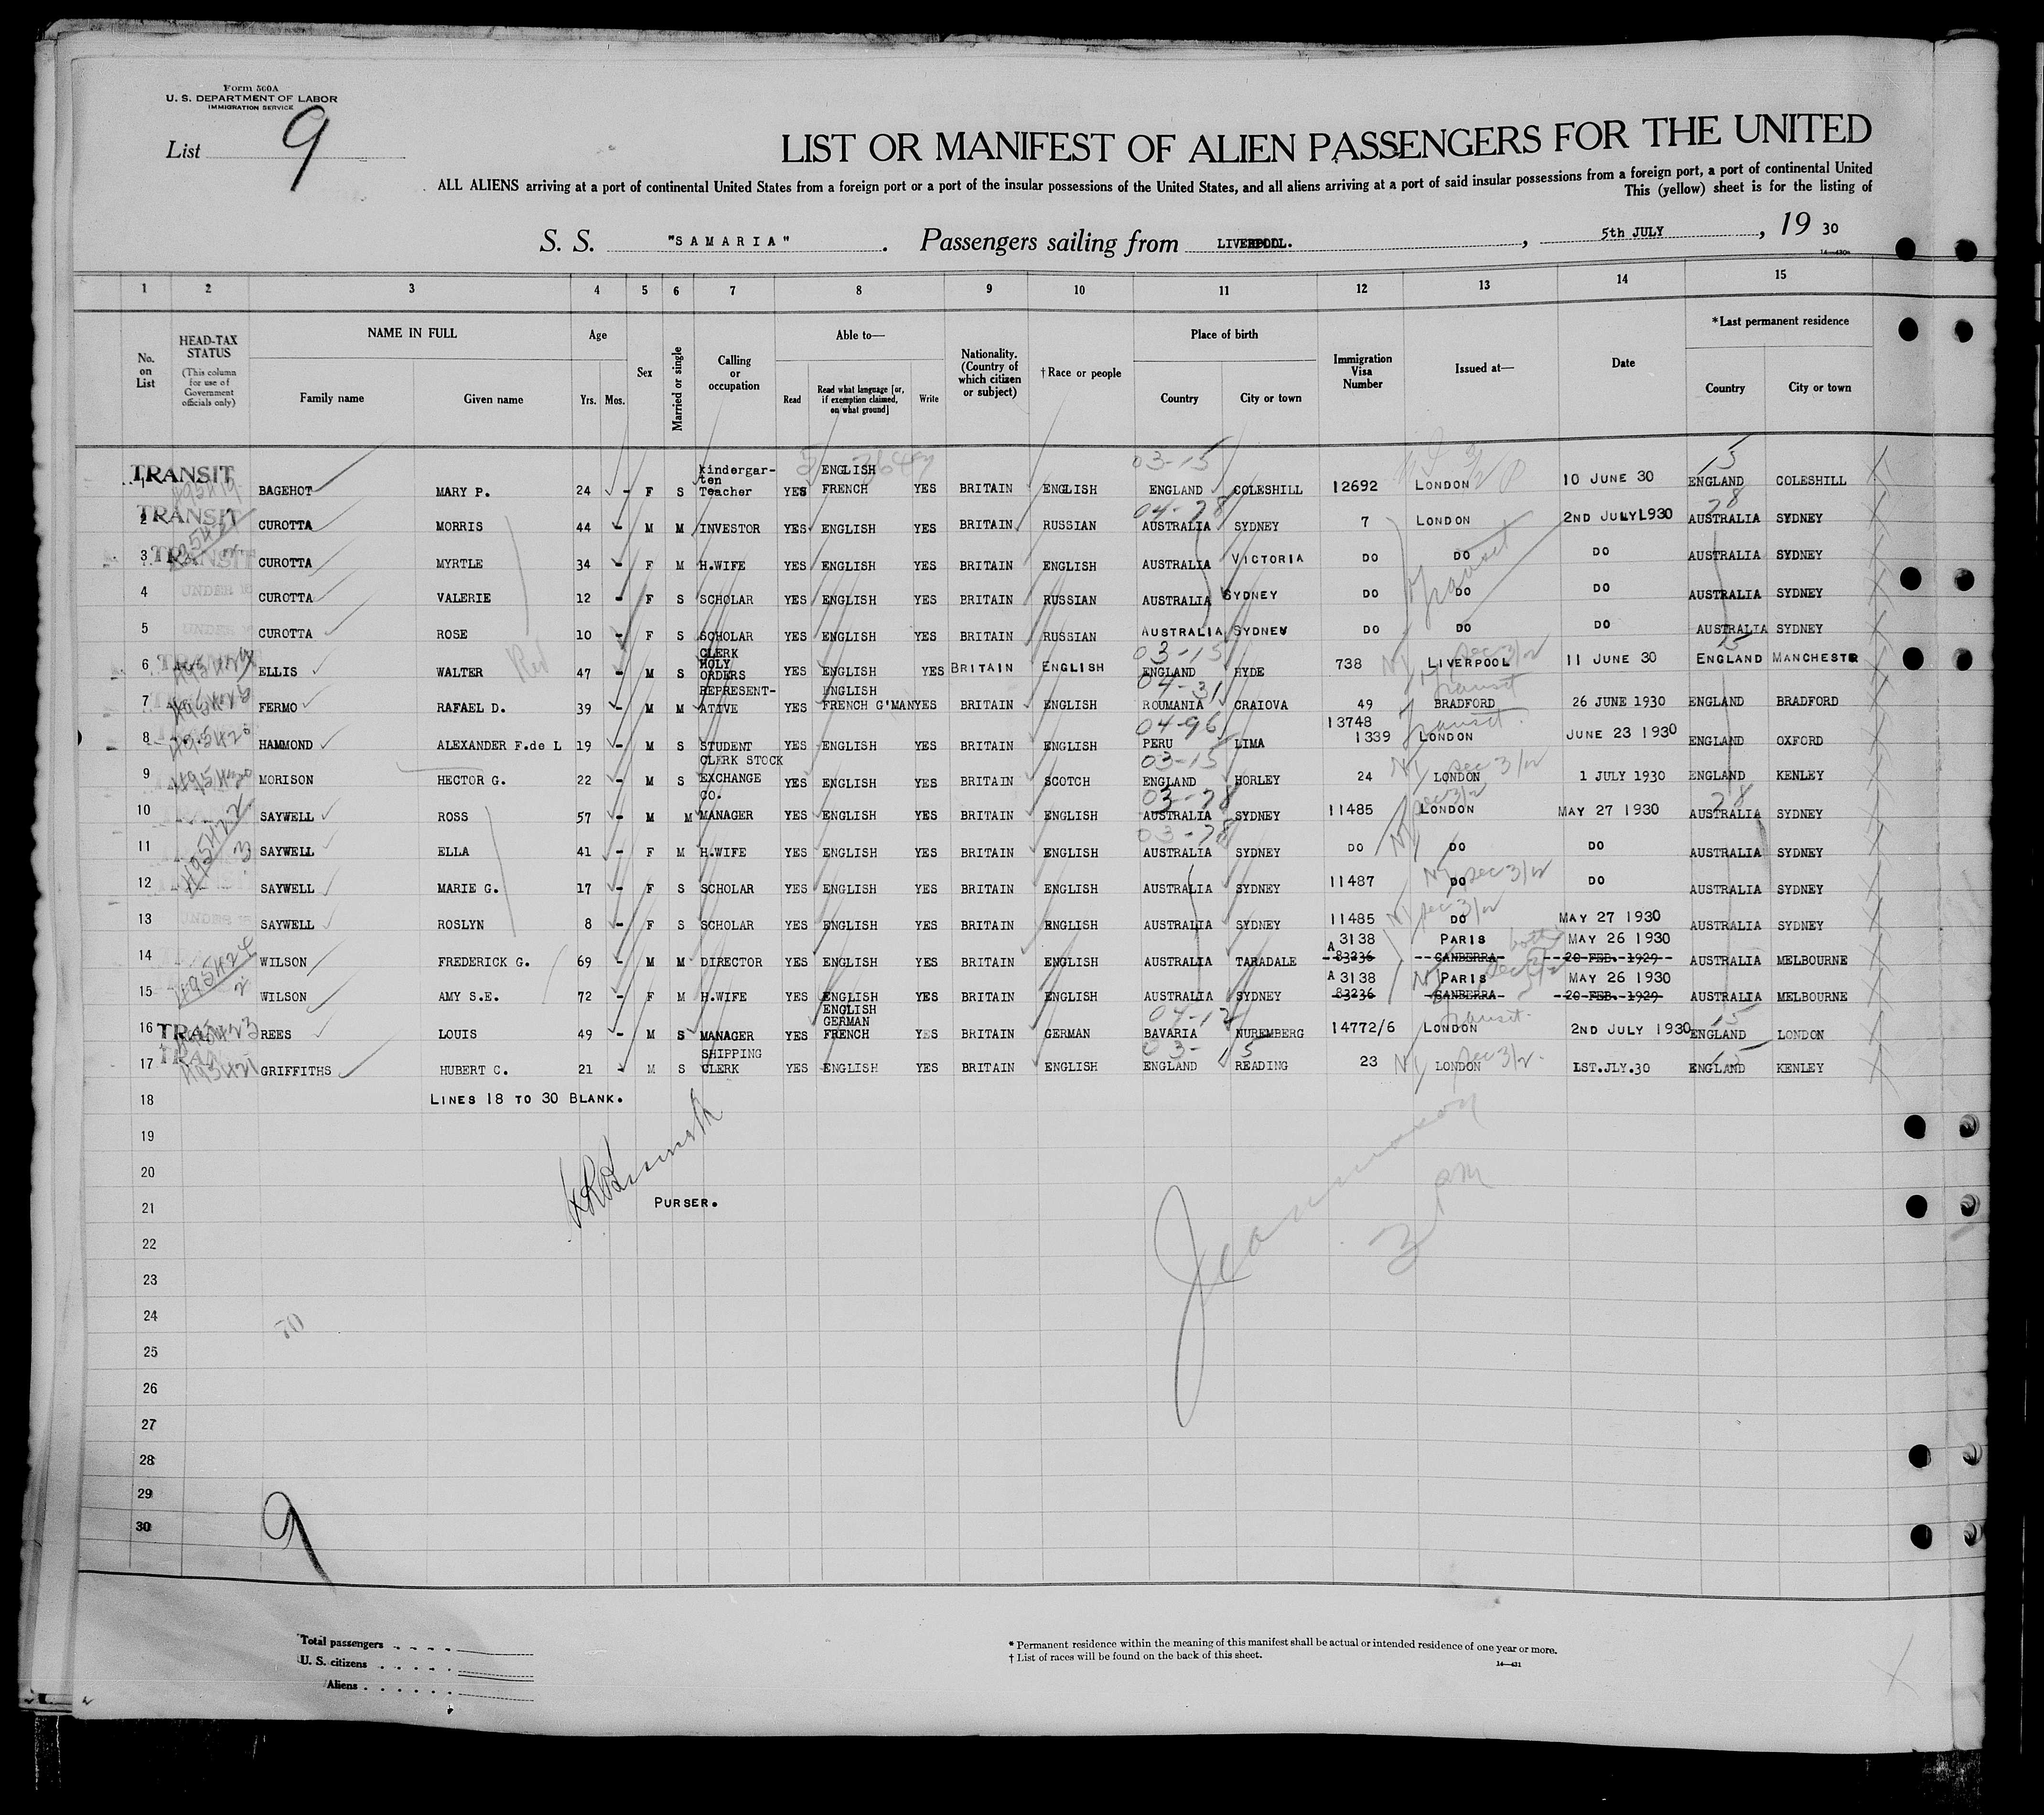 Form 500A
U. S. DEPARTMENT OF LABOR
IMMIGRATION SERVICE
List 9
LIST OR MANIFEST OF ALIEN PASSENGERS FOR THE UNITED
ALL ALIENS arriving at a port of continental United States from a foreign port or a port of the insular possessions of the United States, and all aliens arriving at a port of said insular possessions from a foreign port, a port of continental United
This (yellow) sheet is for the listing of
S. S. "SAMARIA". Passengers sailing from LIVERPOOL., 5th JULY, 19 30
14-430a
1 2 3 4 5 6 7 8 9 10 11 12 13 14 15
No. on List
HEAD-TAX STATUS (This column for use of Government officials only)
NAME IN FULL
Family name Given name
Age
Yrs. Mos.
Sex
Married or single
Calling or occupation
Able to—
Read Read what language [or, if exemption claimed, on what ground] Write
Nationality. (Country of which citizen or subject)
†Race or people
Place of birth
Country City or town
Immigration Visa Number
Issued at—
Date
*Last permanent residence
Country City or town
TRANSIT 03-15 15
1 BAGEHOT MARY P. 24 - F S kindergar-ten Teacher YES ENGLISH FRENCH YES BRITAIN ENGLISH ENGLAND COLESHILL 12692 LONDON 10 JUNE 30 ENGLAND COLESHILL
TRANSIT 04-78 78
2 CUROTTA MORRIS 44 - M M INVESTOR YES ENGLISH YES BRITAIN RUSSIAN AUSTRALIA SYDNEY 7 LONDON 2ND JULY1930 AUSTRALIA SYDNEY
TRANSIT
3 CUROTTA MYRTLE 34 - F M H.WIFE YES ENGLISH YES BRITAIN ENGLISH AUSTRALIA VICTORIA DO DO DO AUSTRALIA SYDNEY
Transit
4 UNDER 16 CUROTTA VALERIE 12 - F S SCHOLAR YES ENGLISH YES BRITAIN RUSSIAN AUSTRALIA SYDNEY DO DO DO AUSTRALIA SYDNEY
5 UNDER 16 CUROTTA ROSE 10 - F S SCHOLAR YES ENGLISH YES BRITAIN RUSSIAN AUSTRALIA SYDNEY DO DO DO AUSTRALIA SYDNEY
03-15 15
6 ELLIS WALTER 47 - M S CLERK HOLY ORDERS YES ENGLISH YES BRITAIN ENGLISH ENGLAND HYDE 738 LIVERPOOL 11 JUNE 30 ENGLAND MANCHESTR
04-31 Transit
7 FERMO RAFAEL D. 39 - M M REPRESENT-ATIVE YES ENGLISH FRENCH G'MAN YES BRITAIN ENGLISH ROUMANIA CRAIOVA 49 BRADFORD 26 JUNE 1930 ENGLAND BRADFORD
04-96 Transit
8 HAMMOND ALEXANDER F.de L 19 - M S STUDENT YES ENGLISH YES BRITAIN ENGLISH PERU LIMA 13748 1339 LONDON JUNE 23 1930 ENGLAND OXFORD
03-15
9 MORISON HECTOR G. 22 - M S CLERK STOCK EXCHANGE YES ENGLISH YES BRITAIN SCOTCH ENGLAND HORLEY 24 LONDON 1 JULY 1930 ENGLAND KENLEY
03-78 78
10 SAYWELL ROSS 57 - M M CO. MANAGER YES ENGLISH YES BRITAIN ENGLISH AUSTRALIA SYDNEY 11485 LONDON MAY 27 1930 AUSTRALIA SYDNEY
03-78
11 SAYWELL ELLA 41 - F M H.WIFE YES ENGLISH YES BRITAIN ENGLISH AUSTRALIA SYDNEY DO DO DO AUSTRALIA SYDNEY
12 SAYWELL MARIE G. 17 - F S SCHOLAR YES ENGLISH YES BRITAIN ENGLISH AUSTRALIA SYDNEY 11487 DO DO AUSTRALIA SYDNEY
13 UNDER 16 SAYWELL ROSLYN 8 - F S SCHOLAR YES ENGLISH YES BRITAIN ENGLISH AUSTRALIA SYDNEY 11485 DO MAY 27 1930 AUSTRALIA SYDNEY
A 3138 PARIS MAY 26 1930
14 WILSON FREDERICK G. 69 - M M DIRECTOR YES ENGLISH YES BRITAIN ENGLISH AUSTRALIA TARADALE 83236 CANBERRA 20 FEB. 1929 AUSTRALIA MELBOURNE
A 3138 PARIS MAY 26 1930
15 WILSON AMY S.E. 72 - F M H.WIFE YES ENGLISH YES BRITAIN ENGLISH AUSTRALIA SYDNEY 83236 CANBERRA 20 FEB. 1929 AUSTRALIA MELBOURNE
04-12 Transit 15
16 REES LOUIS 49 - M S MANAGER YES ENGLISH GERMAN FRENCH YES BRITAIN GERMAN BAVARIA NUREMBERG 14772/6 LONDON 2ND JULY 1930 ENGLAND LONDON
03-15 15
17 GRIFFITHS HUBERT C. 21 - M S SHIPPING CLERK YES ENGLISH YES BRITAIN ENGLISH ENGLAND READING 23 LONDON 1ST.JLY.30 ENGLAND KENLEY
18 LINES 18 TO 30 BLANK.
19
20
21 PURSER.
22
23
24
25
26
27
28
29
30
3 PM
70
9
Total passengers
U. S. citizens
Aliens
* Permanent residence within the meaning of this manifest shall be actual or intended residence of one year or more.
† List of races will be found on the back of this sheet.
14-431